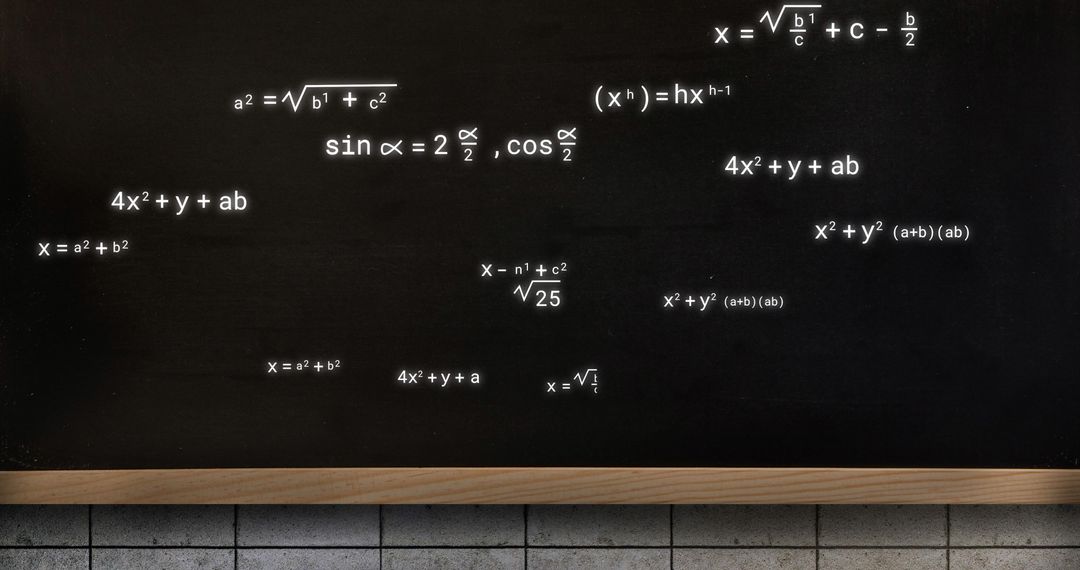 x = √(b¹/c) + c − b/2
a² = √(b¹ + c²)
(xʰ) = hxʰ⁻¹
sin α = 2 α/2 , cos α/2
4x² + y + ab
4x² + y + ab
x² + y² (a+b)(ab)
x = a² + b²
x − n¹ + c²
√25
x² + y² (a+b)(ab)
x = a² + b²
4x² + y + a
x = √